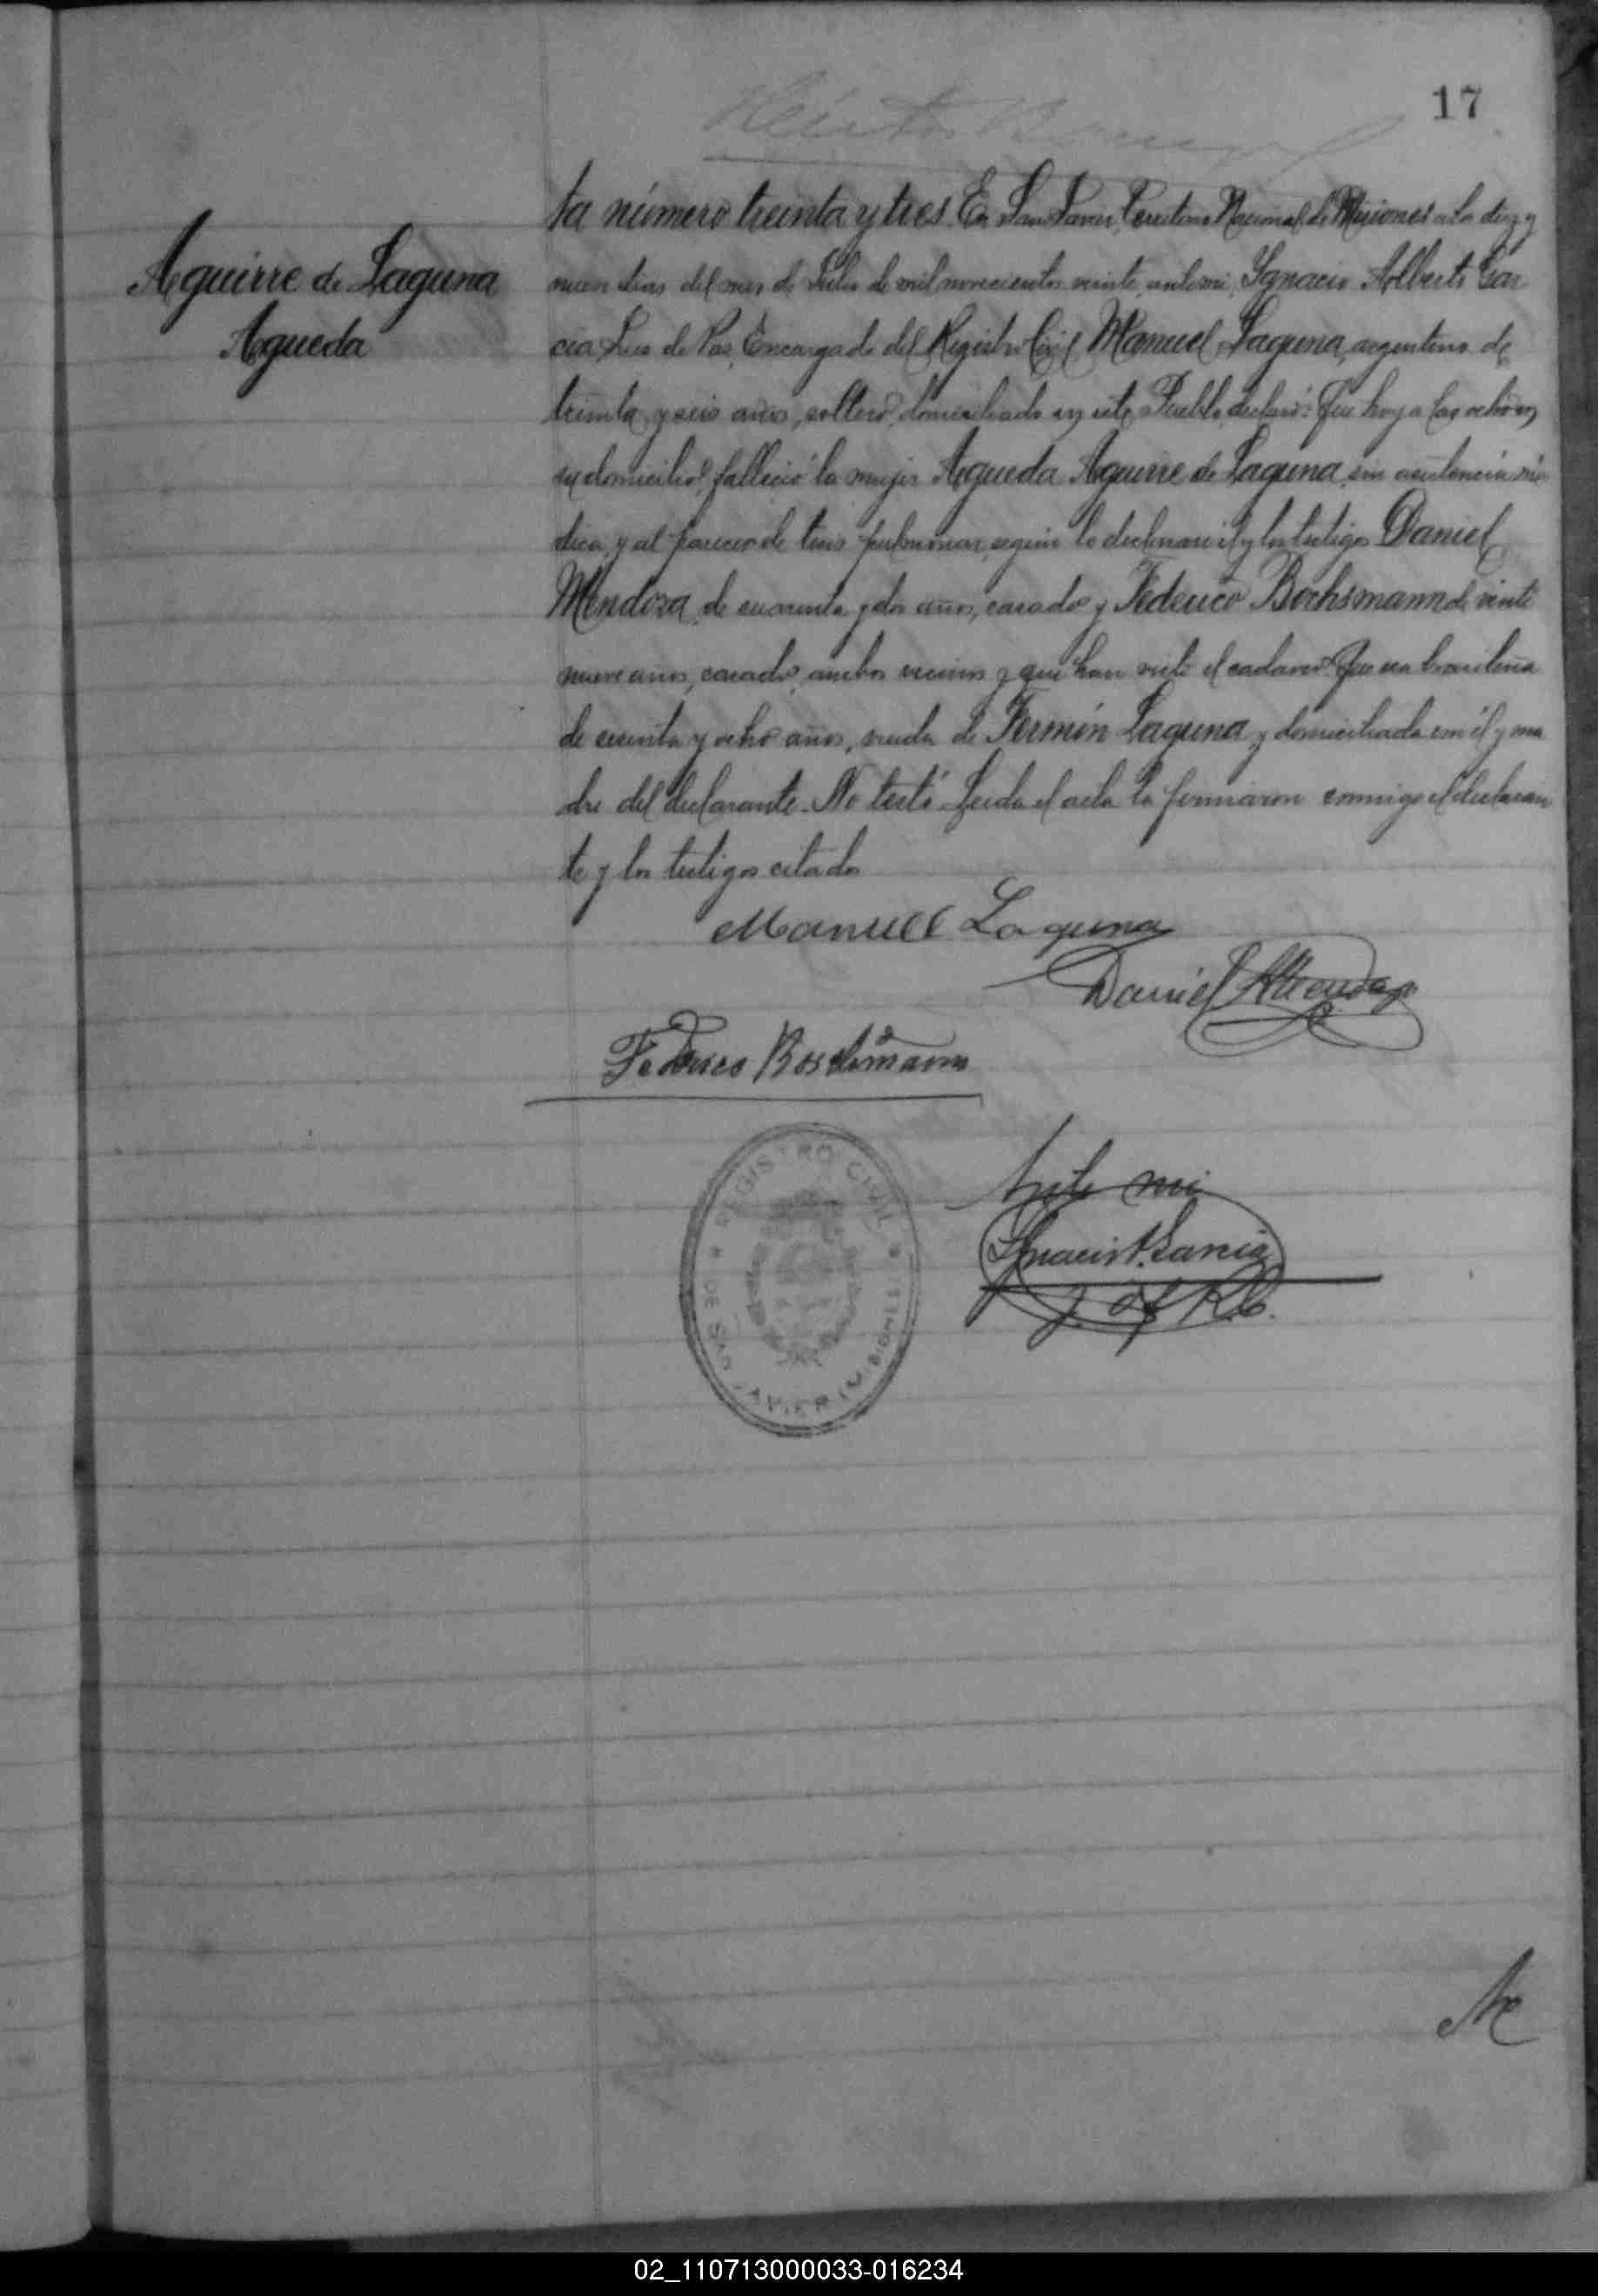 17
Aguirre de Laguna
Agueda
ta número treinta y tres. En San Javier, Territorio Nacional de Misiones a los diez y
nueve dias del mes de Julio de mil novecientos veinte, ante mi, Ygnacio Alberto Gar
cia, Juez de Paz, Encargado del Registro Civil Manuel Laguna, argentino de
treinta y seis años, soltero, domiciliado en este Pueblo, declaró: Que hoy a las ocho en
su domicilio, falleció la mujer Agueda Aguirre de Laguna, sin asistencia mé
dica y al parecer de tisis pulmonar, segun lo declararon él y los testigos Daniel
Mendoza, de cuarenta y dos años, casado y Federico Bochsmann de veinte
nueve años, casado, ambos vecinos y que han visto el cadaver. Que era brasileña
de sesenta y ocho años, viuda de Fermín Laguna y domiciliada con él y ma
dre del declarante. No testó. Leida el acta la firmaron conmigo el declaran
te y los testigos citados
Manuel Laguna
Daniel Mendoza
Federico
REGISTRO CIVIL
DE SAN JAVIER (MISIONES)
Ante mi
Ygnacio A. Garcia
J. R.C.
02_110713000033-016234